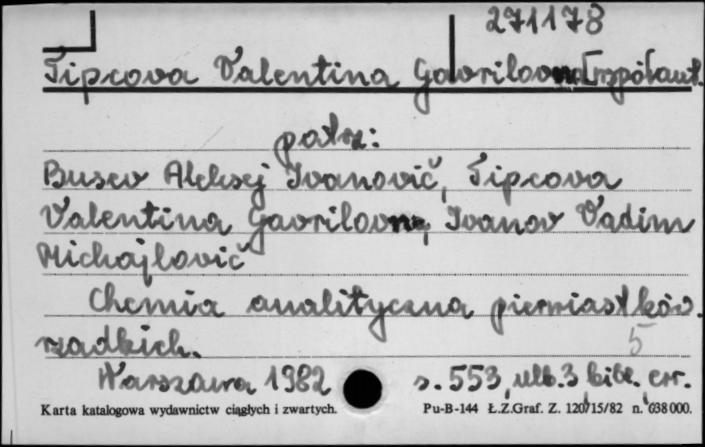 271178
Tipcova Valentina Gavrilovna [współaut.
patrz:
Busev Aleksej Ivanovič, Tipcova
Valentina Gavrilovna, Ivanov Vadim
Michajlovič
Chemia analityczna pierwiastków
rzadkich.
5
Warszawa 1982 s. 553, ulb. 3 bibl. err.
Karta katalogowa wydawnictw ciągłych i zwartych. Pu-B-144 Ł.Z.Graf. Z. 120/15/82 n. 638000.